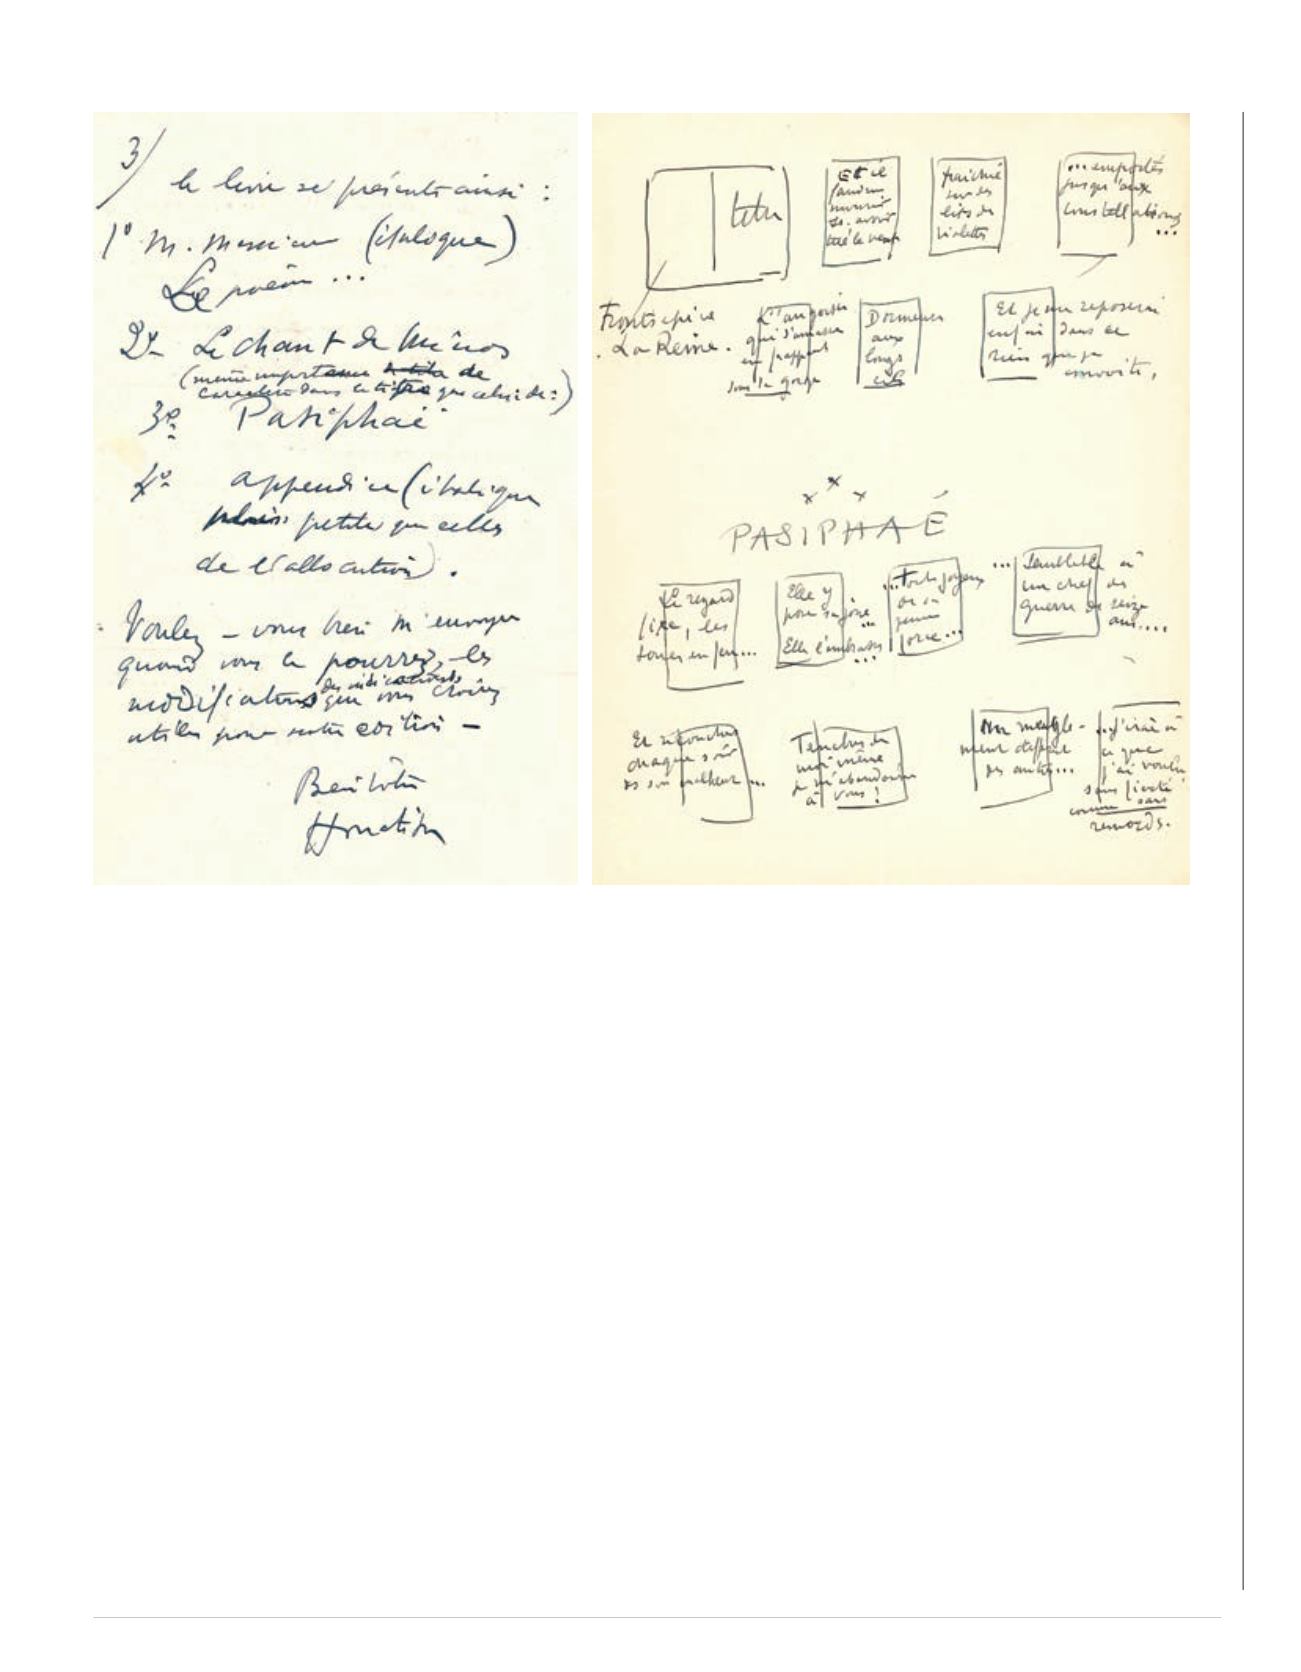 3/
le livre se présente ainsi :
1º M. Messieurs (italique)
Le poème ...
2º- Le chant de Minos
(même importance de
caractère dans le titre que celui de :)
3º Pasiphaé
4º- appendice (italique
plus petite que celles
de l'allocution).
Voulez-vous bien m'envoyer
quand vous le pourrez, les
des indications
modifications que vous croirez
utiles pour notre édition -
Bientôt
titre
Et il
mourir
avoir
fraîchie
sur des
lits de
violettes
... emportés
jusqu'aux
constellations
...
Frontispice
. La Reine .
L'angoisse
qui s'amasse
en frappant
sous ta gorge
Dormeuses
aux
longs
cils
Et je me reposerai
enfin dans ce
rien que je
convoite,
x x x
PASIPHAÉ
Le regard
fixe, les
joues en feu...
Elle y
pose sa joue
...
Elle l'embrasse
...
...
jeune
force...
... Semblable à
un chef de
guerre de seize
ans....
Et se coucher
chaque soir
son malheur ...
moi-même
je m'abandonne
à vous !
meugle-
ment
des autres...
...j'irai à
ce que
j'ai voulu
sans fierté
comme sans
remords.